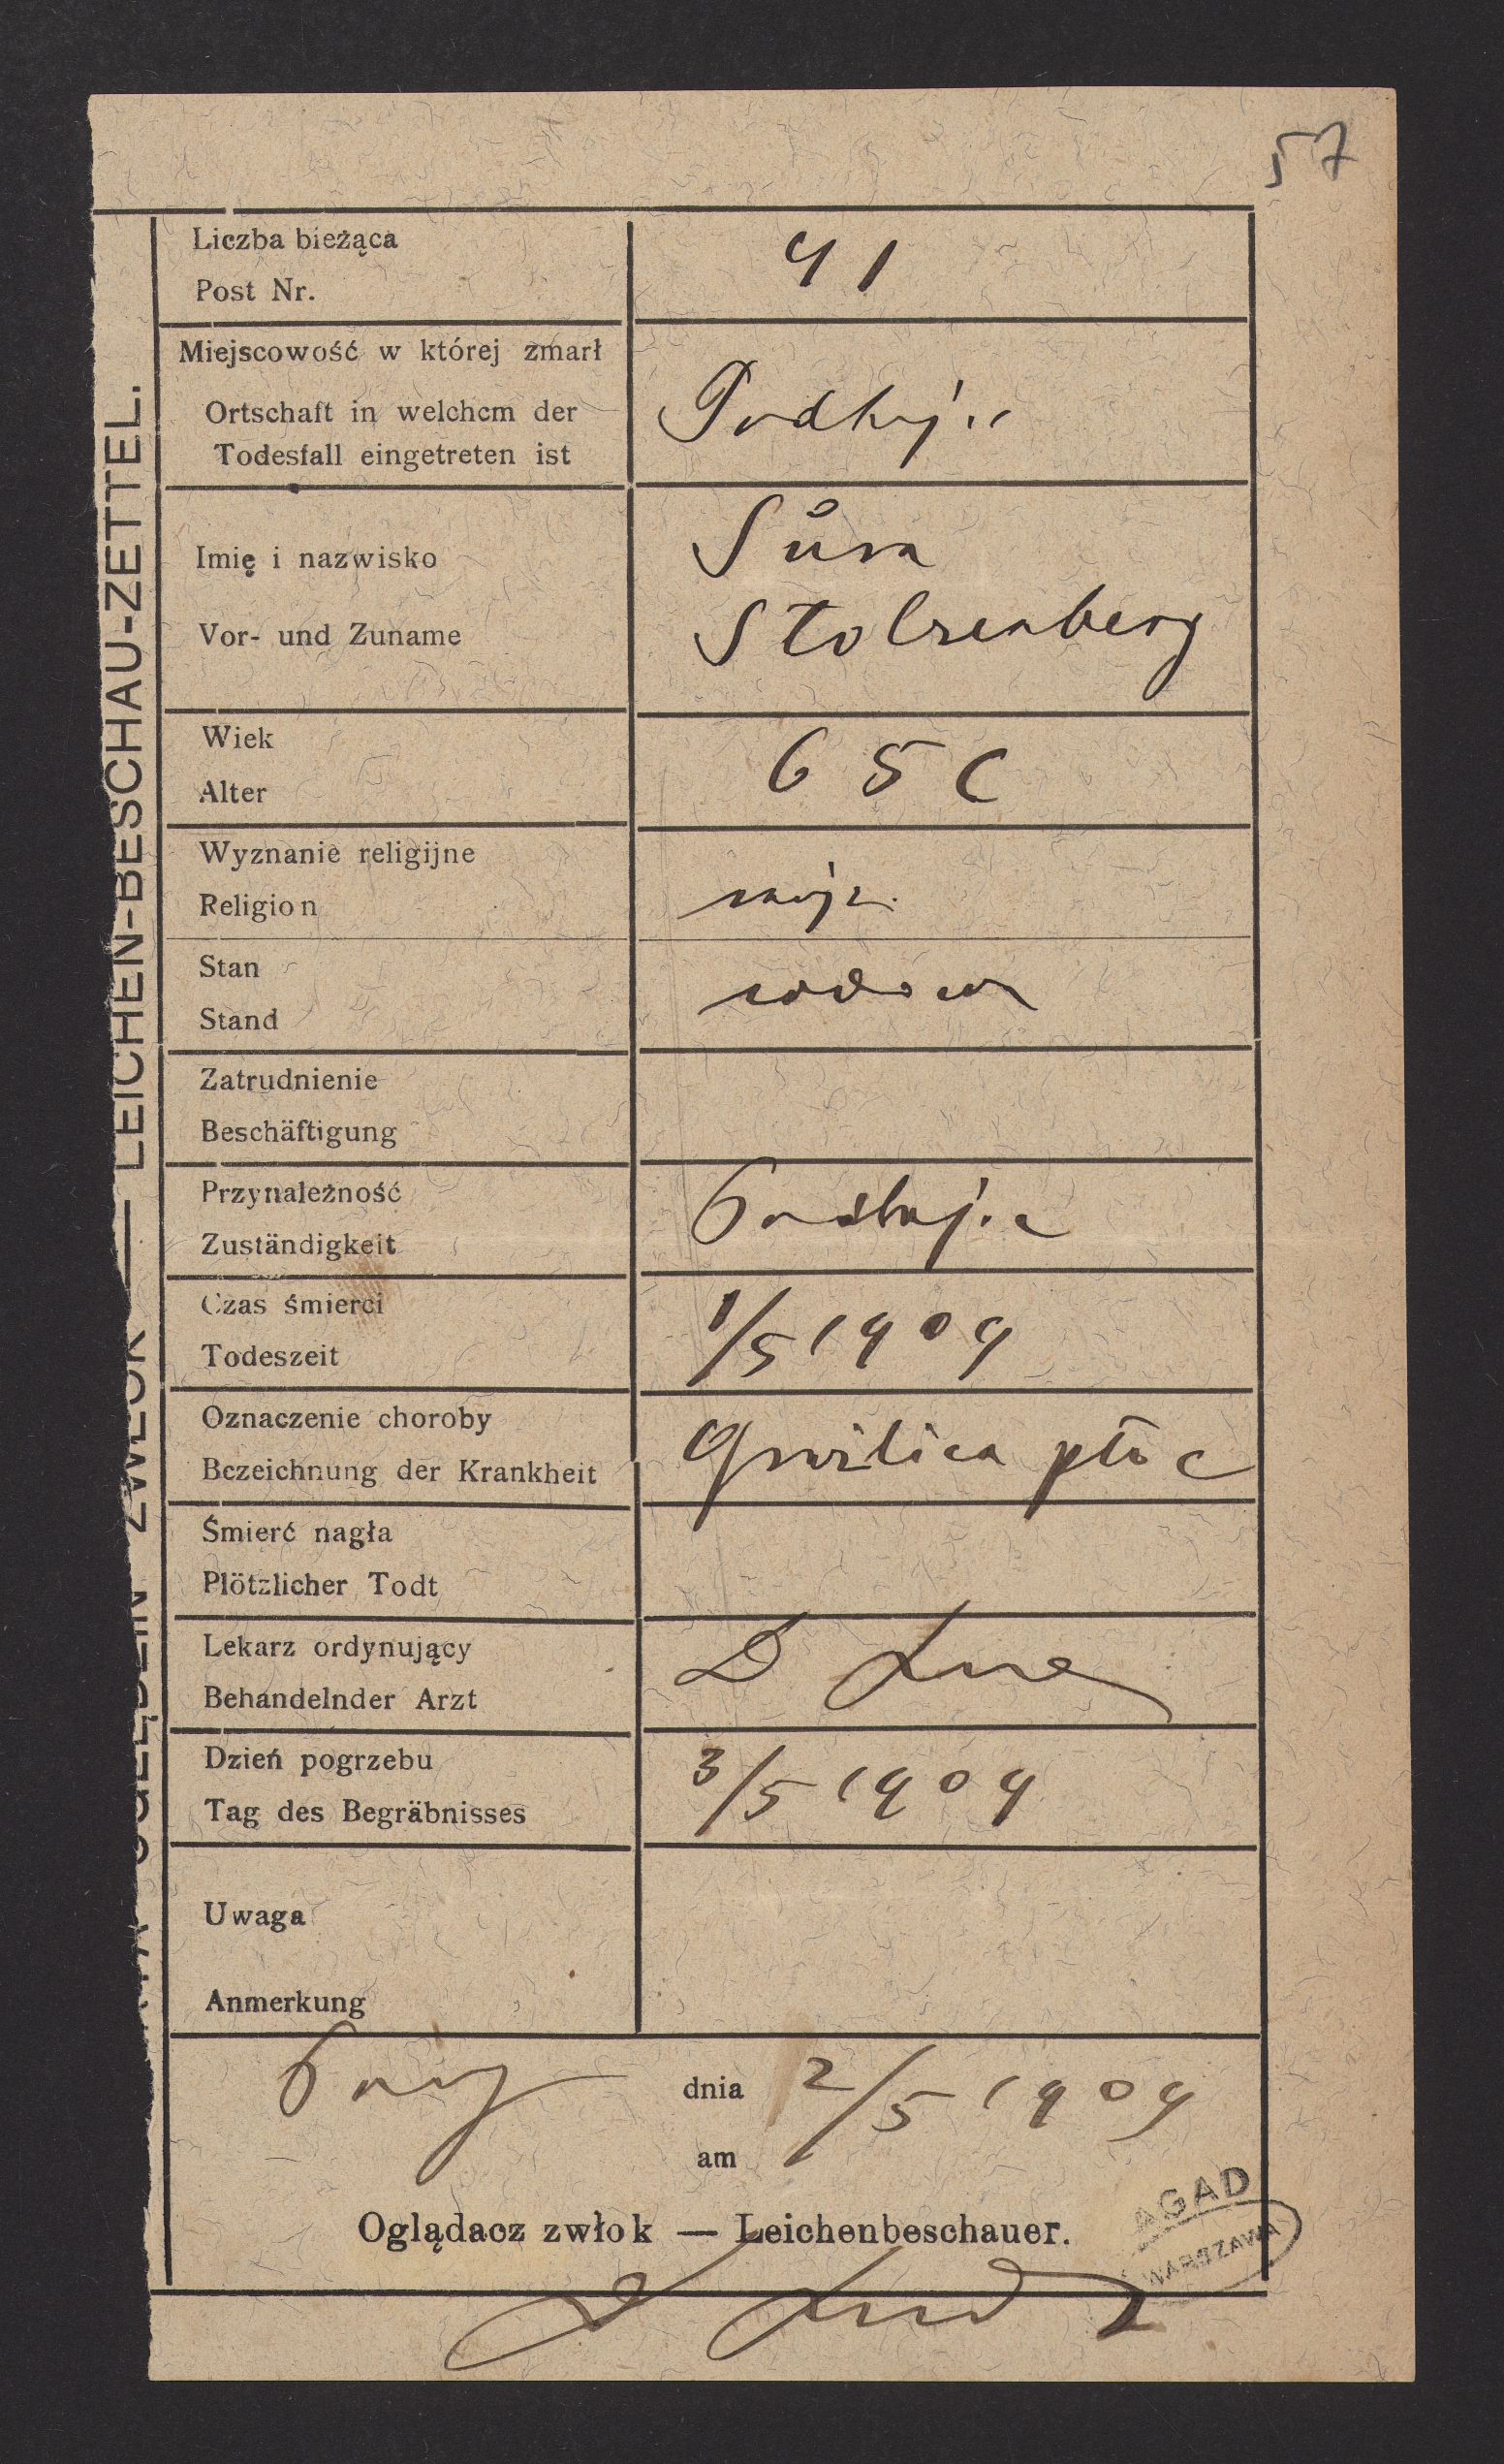 57
LEICHEN-BESCHAU-ZETTEL.
Liczba bieżąca
Post Nr.
41
Miejscowość w której zmarł
Ortschaft in welchem der
Todesfall eingetreten ist
Podhajce
Imię i nazwisko
Vor- und Zuname
Sura
Stolzenberg
Wiek
Alter
65
Wyznanie religijne
Religion
mojż.
Stan
Stand
wdowa
Zatrudnienie
Beschäftigung
Przynależność
Zuständigkeit
Podhajce
Czas śmierci
Todeszeit
1/5 1909
Oznaczenie choroby
Bezeichnung der Krankheit
Gruźlica płuc
Śmierć nagła
Plötzlicher Todt
Lekarz ordynujący
Behandelnder Arzt
D
Dzień pogrzebu
Tag des Begräbnisses
3/5 1909
Uwaga
Anmerkung
dnia 2/5 1909
am
Oglądacz zwłok — Leichenbeschauer.
AGAD
WARSZAWA